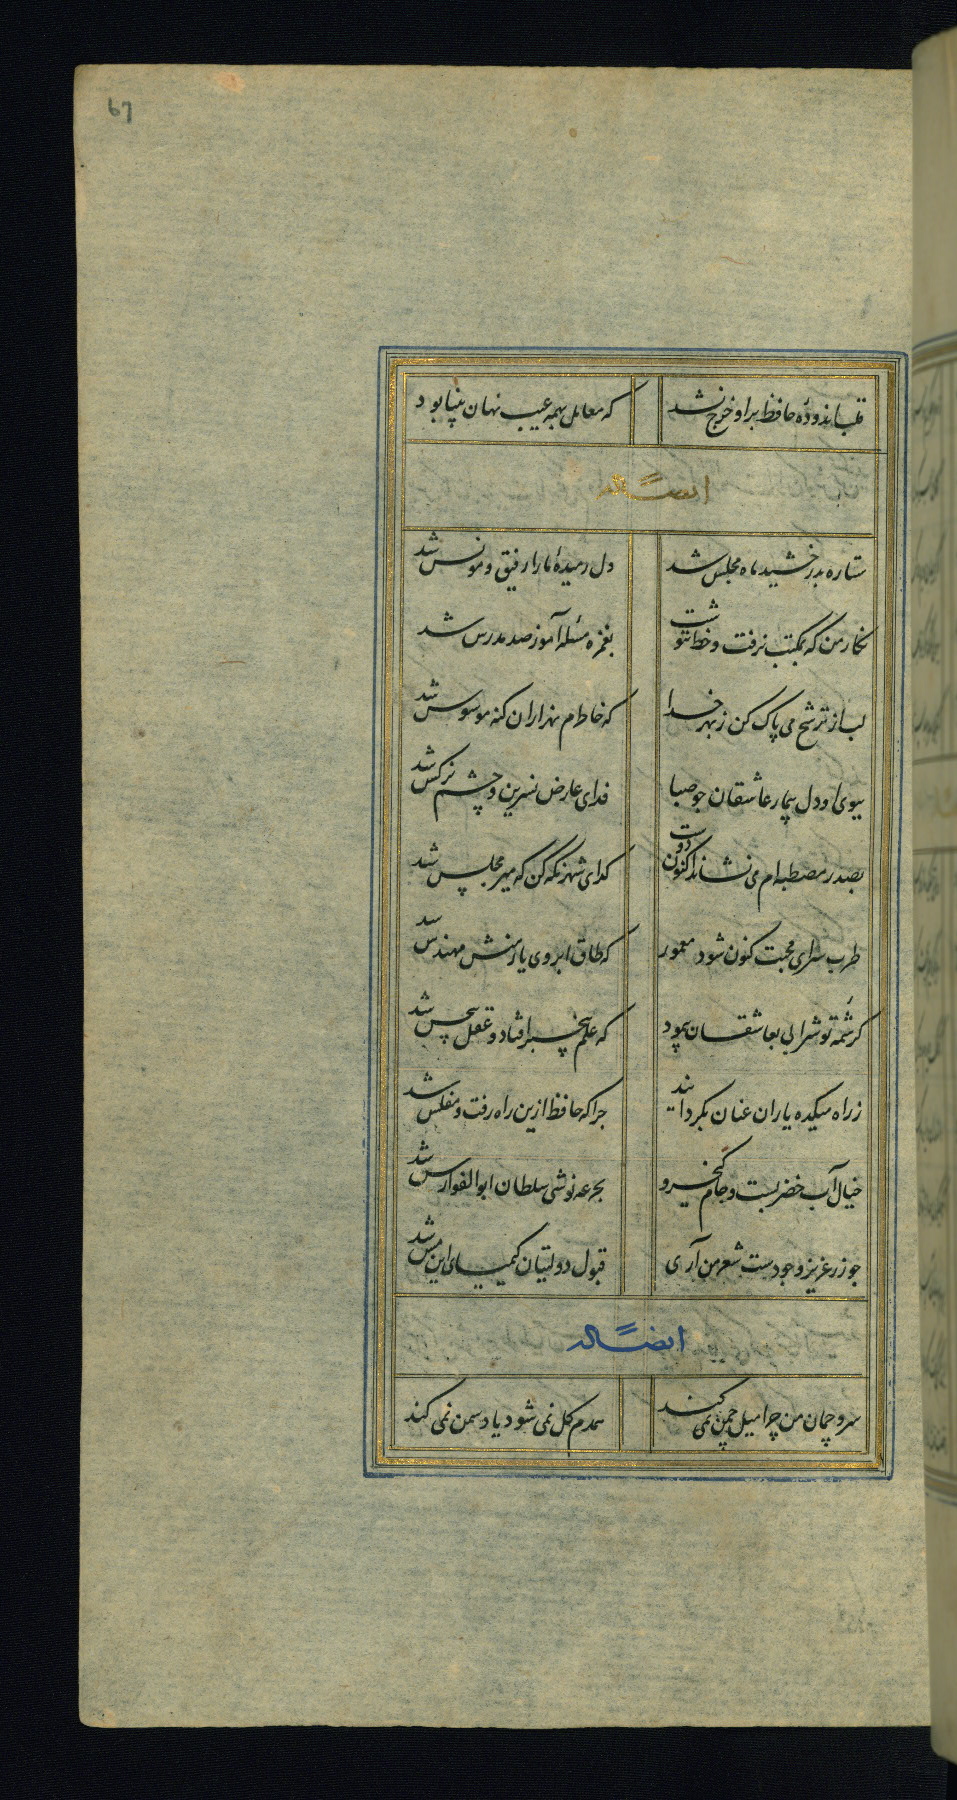 67
قلب اندوده حافظ بر او خرج نشد که معامل بهمه عیب نهان بینا بود
ایضاً له
ستاره بدرخشید ماه مجلس شد دل رمیدهٔ ما را رفیق و مونس شد
نگار من که بمکتب نرفت و خط ننوشت بغمزه مسئله آموز صد مدرس شد
لب از ترشح می پاک کن ز بهر خدا که خاطرم بهزاران گنه موسوس شد
ببوی او دل بیمار عاشقان جو صبا فدای عارض نسرین و چشم نرگس شد
بصدر مصطبه ام می نشاند اکنون دوست گدای شهر نگه کن که میر مجلس شد
طرب سرای محبت کنون شود معمور که طاق ابروی یار منش مهندس شد
کرشمهٔ تو شرابی بعاشقان پیمود که علم بیخبر افتاد و عقل بیحس شد
ز راه میکده یاران عنان بگردانید جرا که حافظ ازین راه رفت و مفلس شد
خیال آب خضر بست و جام کیخسرو بجرعه نوشی سلطان ابوالفوارس شد
جو زر عزیز وجودست شعر من آری قبول دولتیان کیمیای این مس شد
ایضاً له
سرو چمان من چرا میل چمن نمی کند همدم گل نمی شود یاد سمن نمی کند